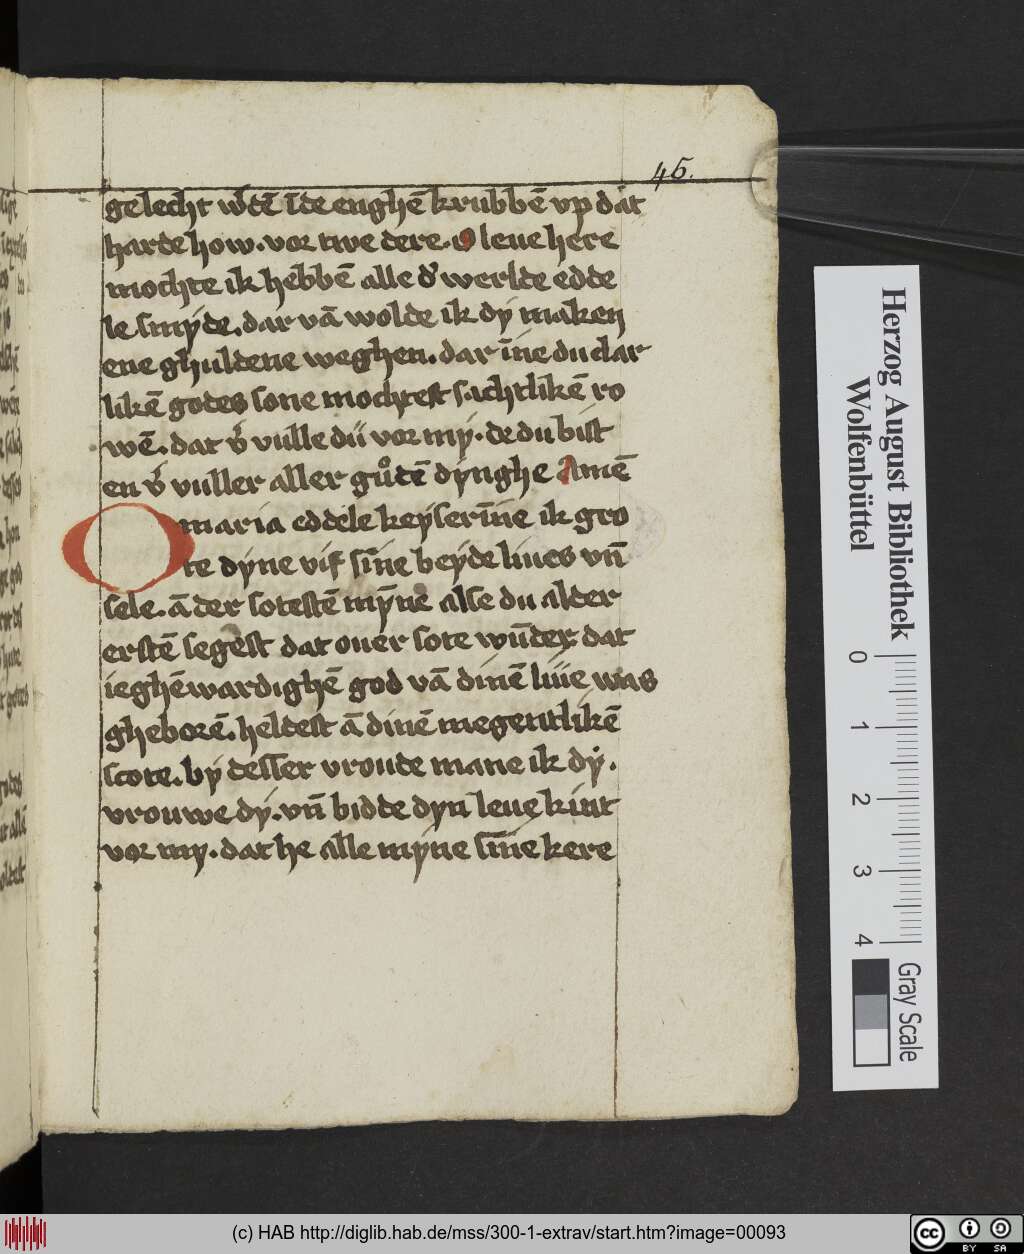 45.
gelecht wͬdē ī de enghē krubbē vp dat
harde how. vor twe dere. O leue here
mochte ik hebbē alle dͬ werlde edde
le smyde. dar vā wolde ik dy maken
ene ghuldene weghen. dar īne du clar
likē godes sone mochtest sachtlikē ro
wē. dat vͬ vulle dū vor my. de du bist
en vͬ vuller aller gůdē dynghe Amē
O maria eddele keyserīne ik gro
te dyne vif sīne beyde liues vn̄
sele. ā der sotestē mȳne alse du alder
erstē segest dat ouer sote wūder. dat
ieghēwardighē god vā dinē liue was
gheborē. heldest ā dinē megentlikē
scote. by desser vroude mane ik dy.
vrouwe dy. vn̄ bidde dyn leue kint
vor my. dat he alle myne sīne kere
Herzog August Bibliothek
Wolfenbüttel
0 1 2 3 4
Gray Scale
(c) HAB http://diglib.hab.de/mss/300-1-extrav/start.htm?image=00093
cc BY SA